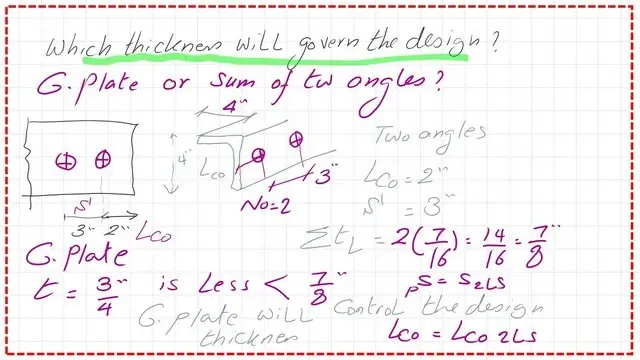 Which thickness will govern the design?
G. Plate or Sum of tw angles?
4"
4"
Lco
3"
No=2
S'
3" 2" Lco
Two angles
Lco = 2"
S' = 3"
ΣtL = 2(7/16) = 14/16 = 7/8"
G. Plate
t = 3/4" is Less < 7/8"
pS = S2LS
G. Plate will Control the design
thickness
Lco = Lco 2LS